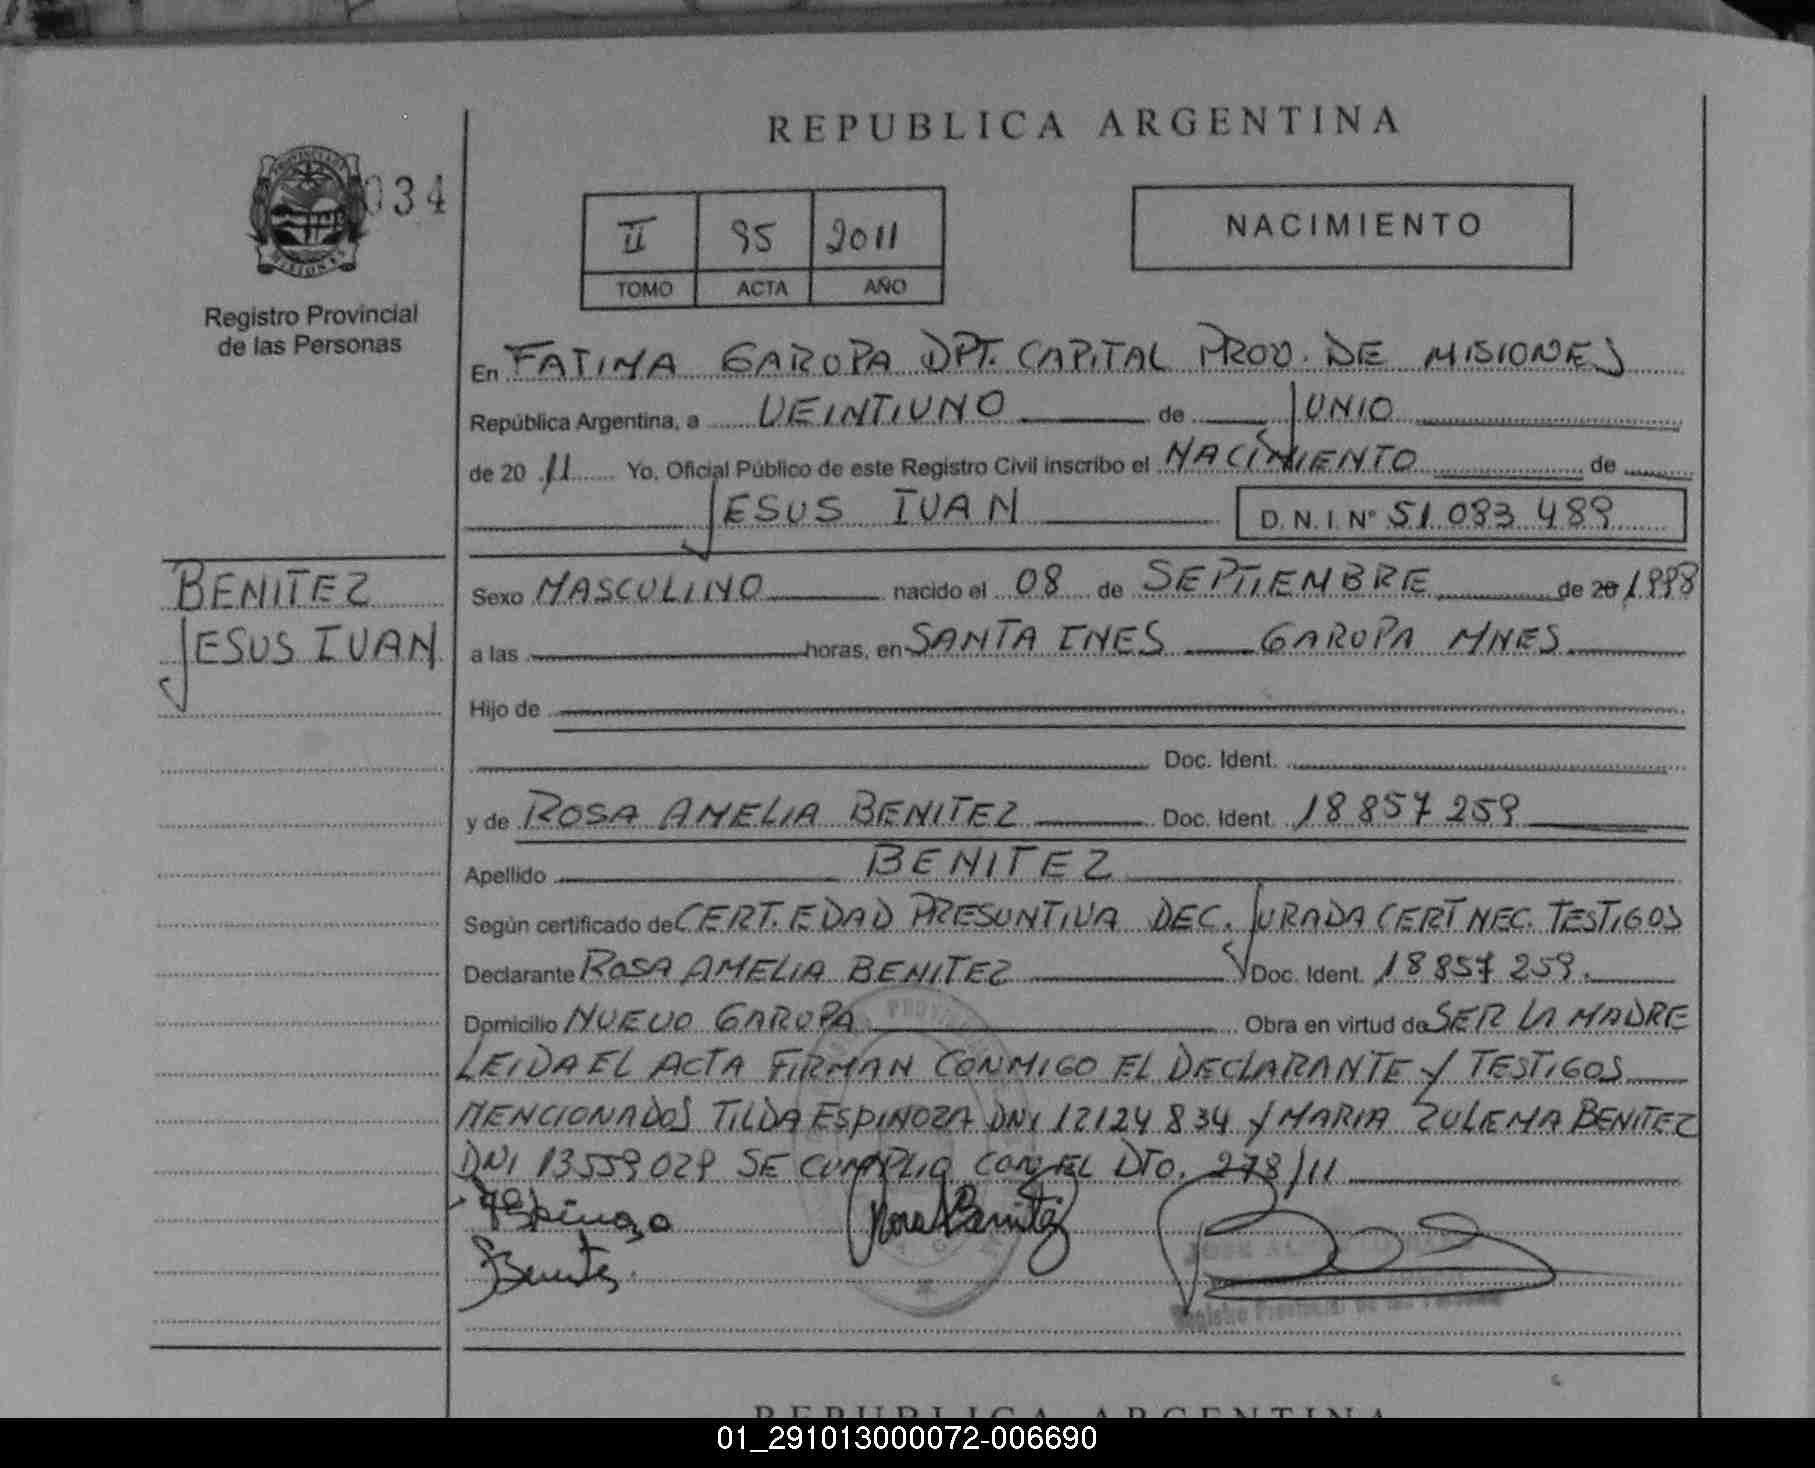 REPUBLICA ARGENTINA
034
NACIMIENTO
II 95 2011
TOMO ACTA AÑO
Registro Provincial
de las Personas
En FATIMA GARUPA DPT. CAPITAL PROV. DE MISIONES
República Argentina, a VEINTIUNO de JUNIO
de 20 11 Yo, Oficial Público de este Registro Civil inscribo el NACIMIENTO de
JESUS IVAN D.N.I. N° 51.083.489
BENITEZ
JESUS IVAN
Sexo MASCULINO nacido el 08 de SEPTIEMBRE de 20 1998
a las horas, en SANTA INES GARUPA MNES
Hijo de
Doc. Ident.
y de ROSA AMELIA BENITEZ Doc. Ident. 18 857 259
Apellido BENITEZ
Según certificado de CERT. EDAD PRESUNTIVA DEC. JURADA CERT NEC. TESTIGOS
Declarante ROSA AMELIA BENITEZ Doc. Ident. 18 857 259.
Domicilio NUEVO GARUPA Obra en virtud de SER LA MADRE
LEIDA EL ACTA FIRMAN CONMIGO EL DECLARANTE Y TESTIGOS
MENCIONADOS TILDA ESPINOZA DNI 12124 834 Y MARIA ZULEMA BENITEZ
DNI 13559029 SE CUMPLIO CON EL DTO. 278/11
Espinoza Rosa Benitez
Benitez
Registro Provincial de las Personas
REPUBLICA ARGENTINA
01_291013000072-006690